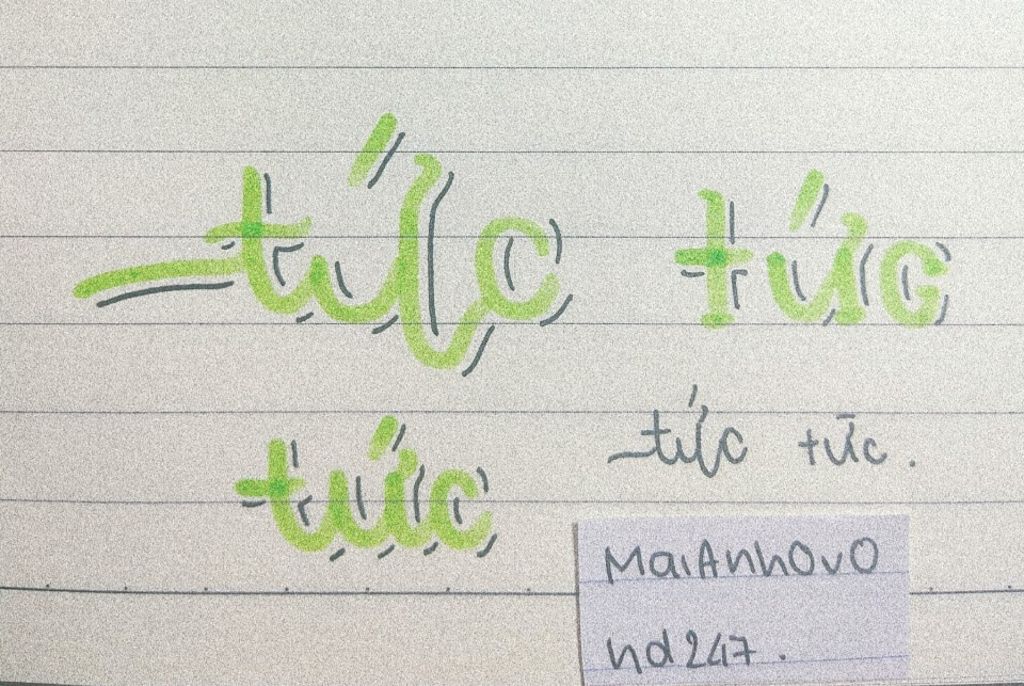 tức tức
tức tức tức.
MaiAnhOvO
hd247.